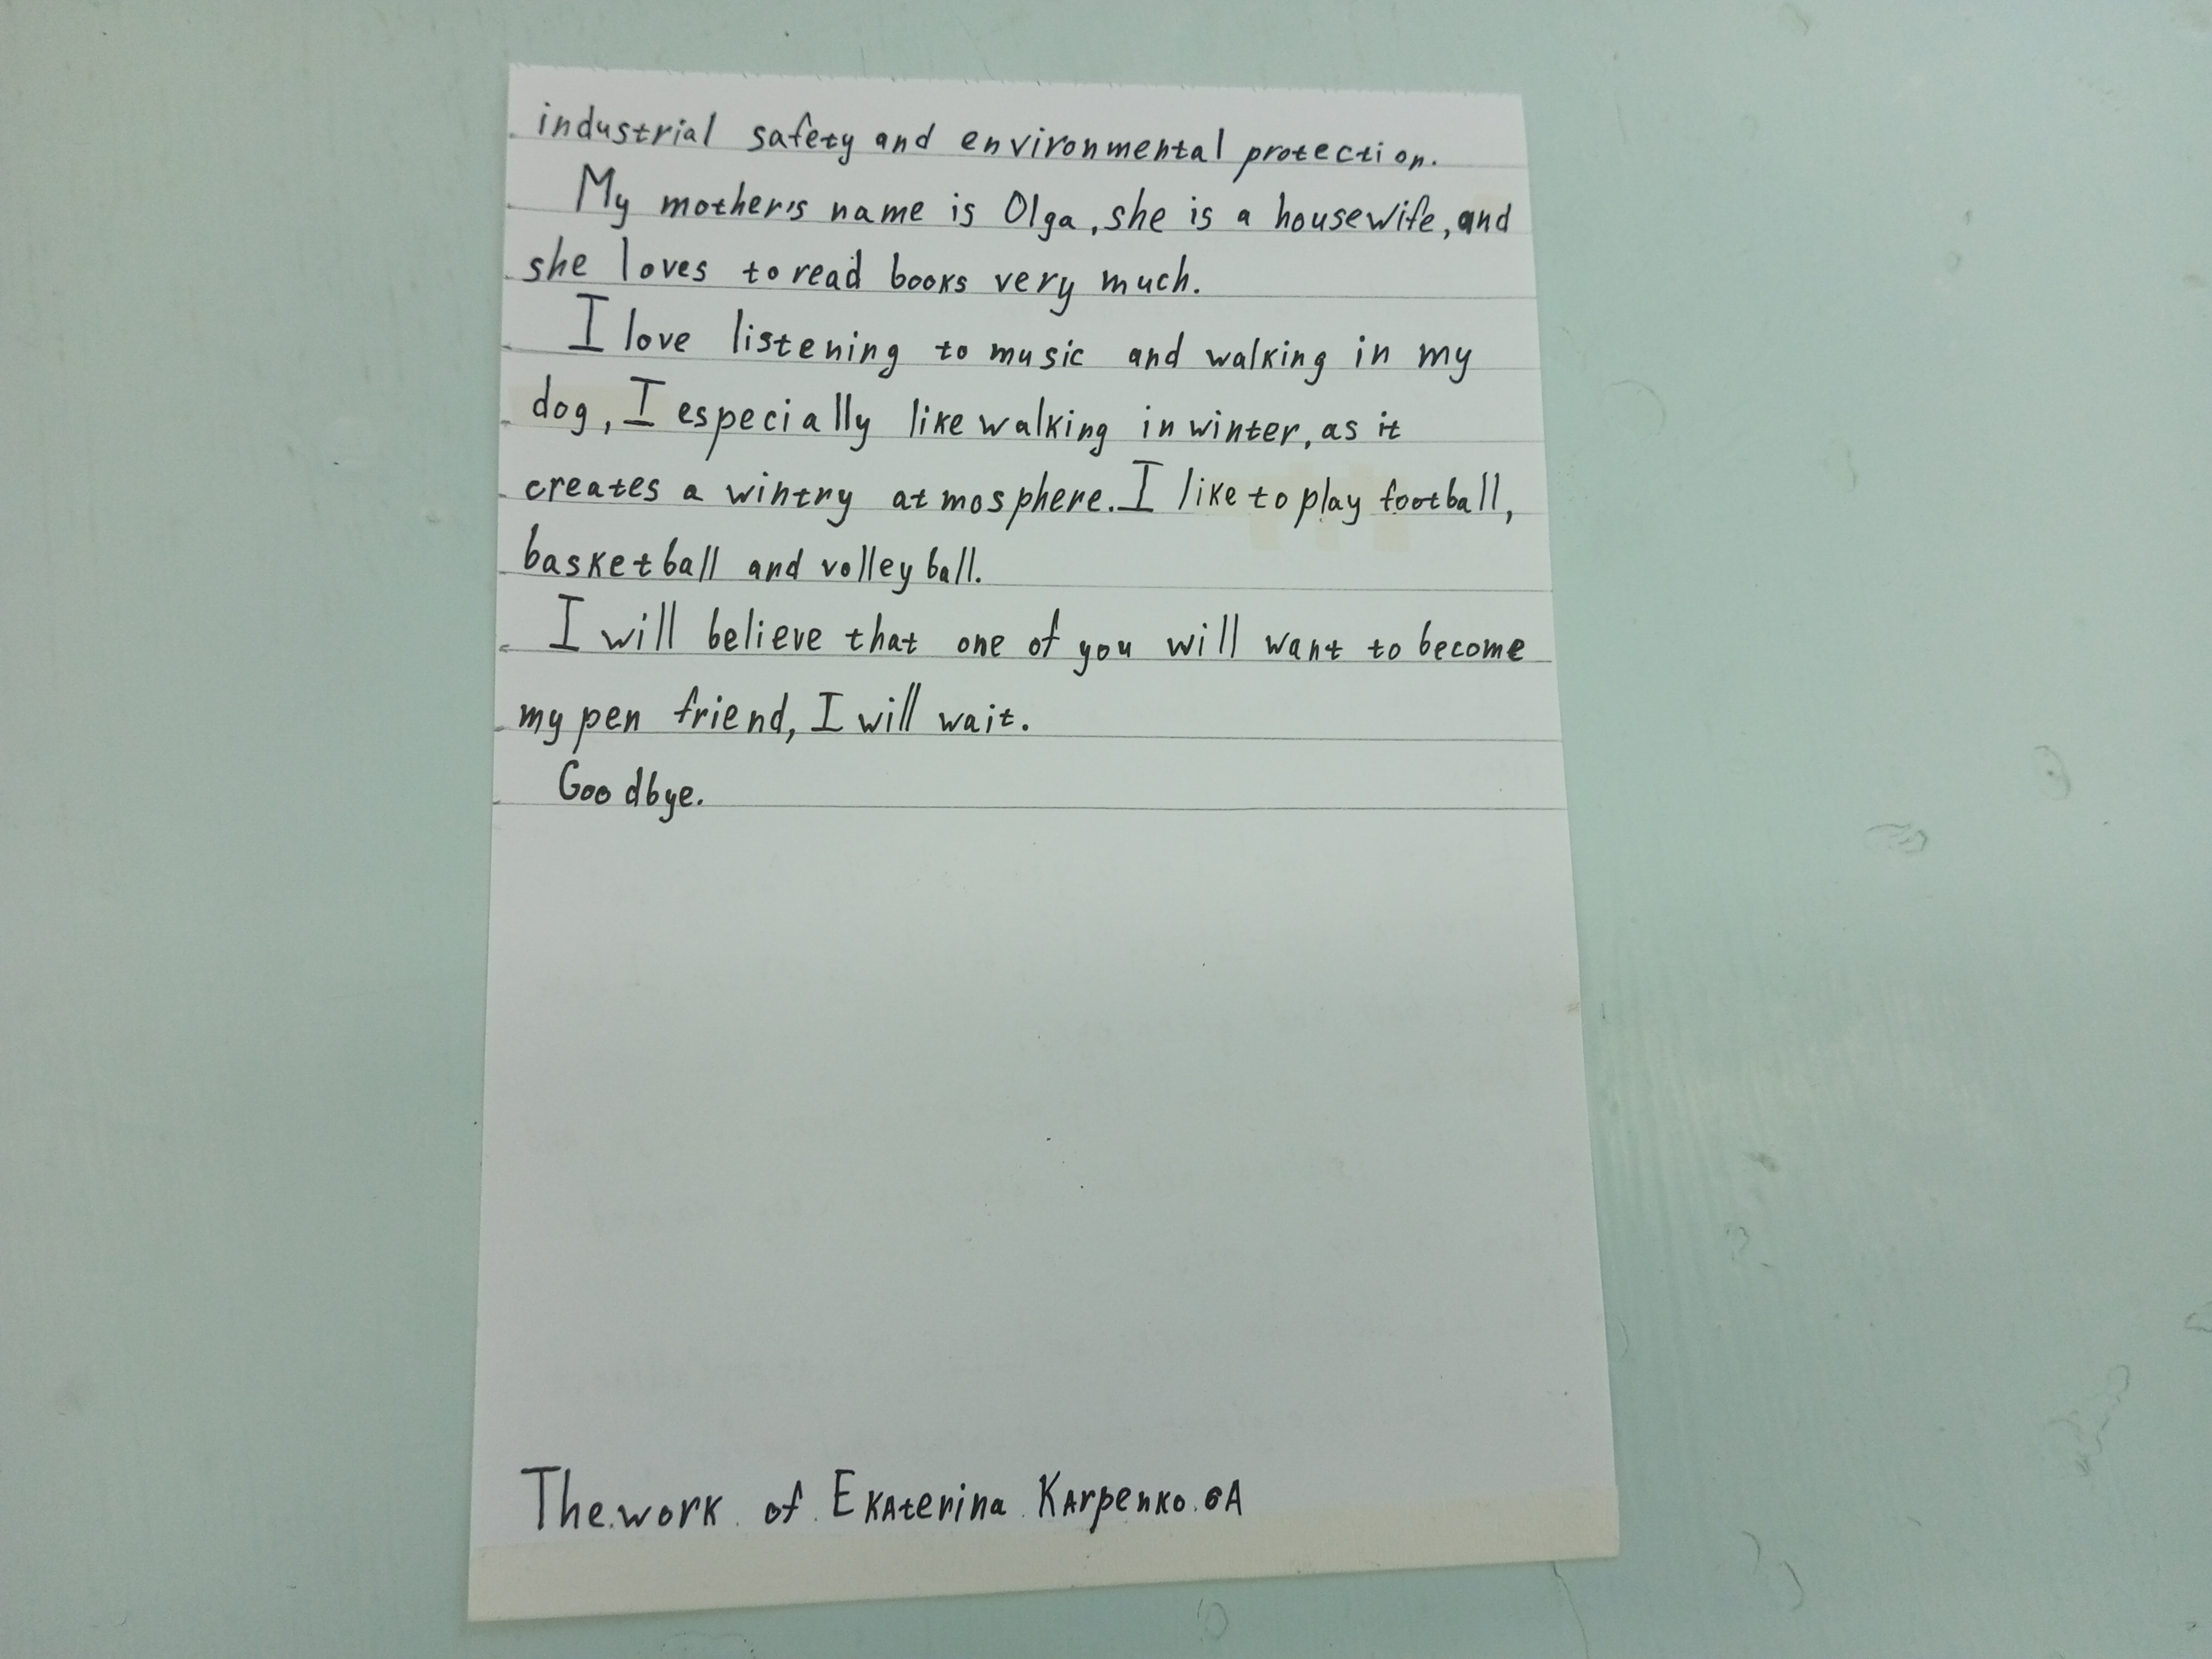 industrial safety and environmental protection.
My mother's name is Olga, she is a housewife, and
she loves to read books very much.
I love listening to music and walking in my
dog, I especially like walking in winter, as it
creates a wintry atmosphere. I like to play football,
basketball and volleyball.
I will believe that one of you will want to become
my pen friend, I will wait.
Goodbye.
The work of Ekaterina Karpenko. 6A